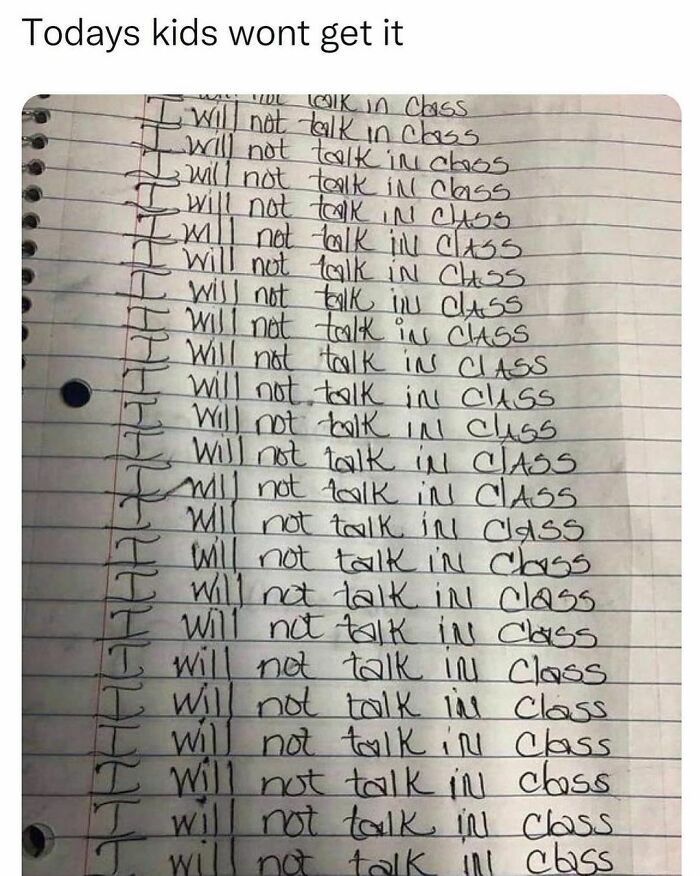 Todays kids wont get it
will not talk in class
I will not talk in class
I will not talk iN class
I will not talk iN class
I will not talk iN ClAss
I will not talk iN ClASS
I will not talk iN ClASS
I will not talk iN ClASS
I will not talk iN ClASS
I Will not talk iN ClASS
I will not talk iN ClASS
I Will not talk iN ClASS
I Will not talk iN ClASS
I will not talk iN ClASS
I will not talk iN Class
I will not talk iN Class
I Will not talk iN Class
I Will not talk iN Class
I will not talk iN Class
I will not talk iN Class
I will not talk iN Class
I will not talk iN class
I will not talk iN class
I will not talk iN class